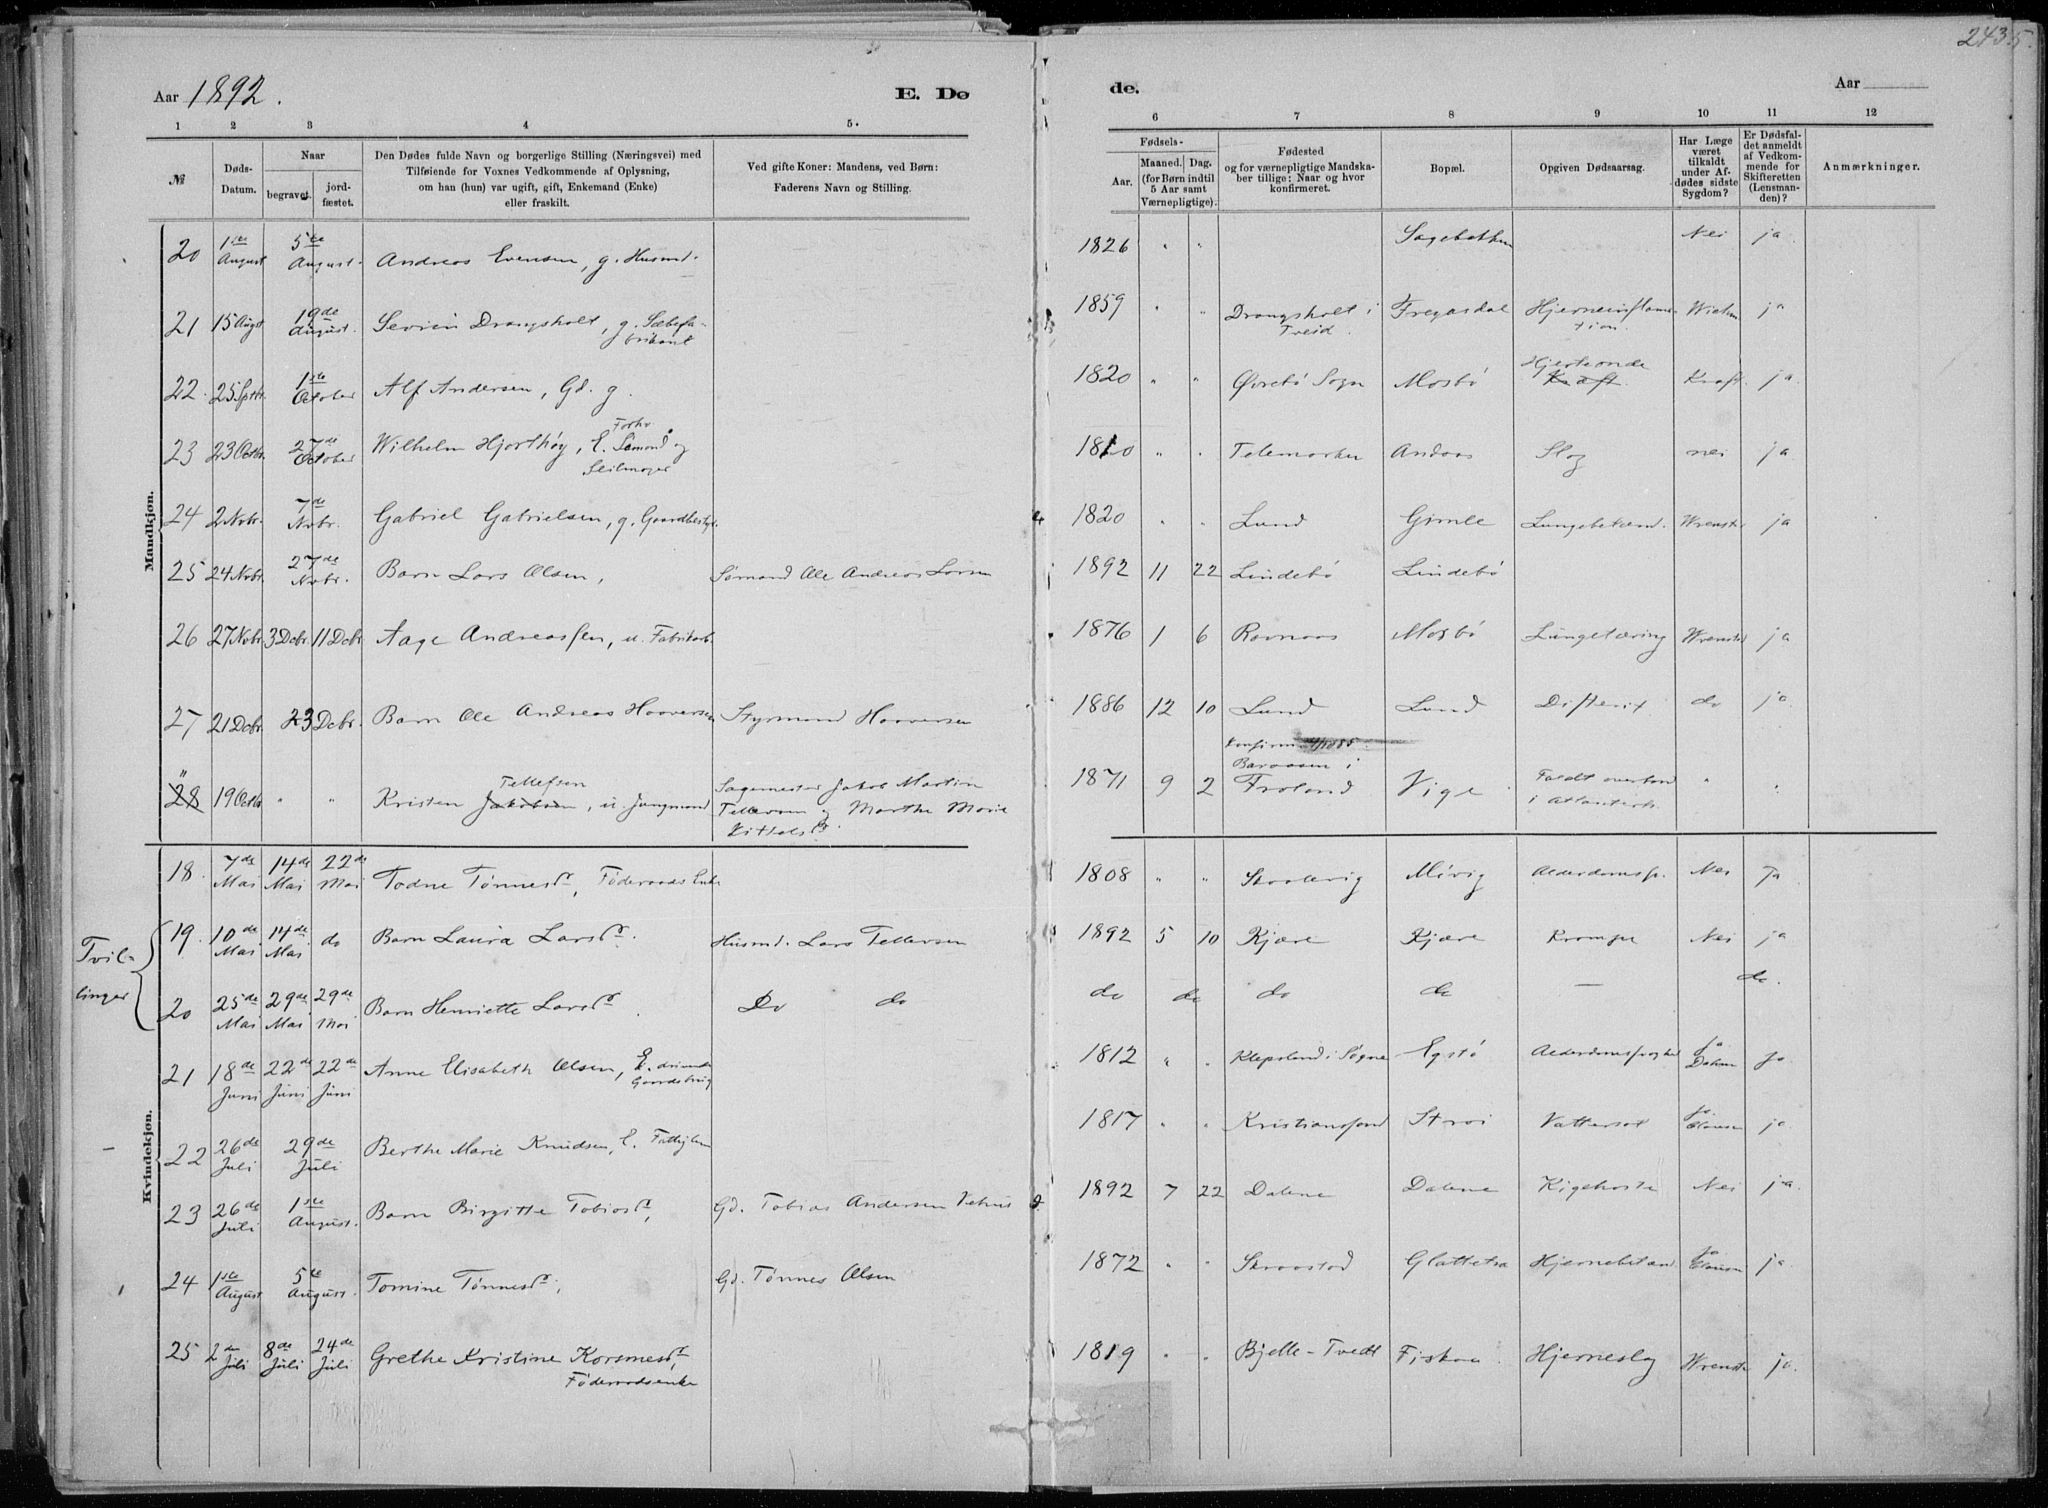 243.5.
Aar 1892.
E. Dø
de.
Aar
1 2 3 4 5. 6 7 8 9 10 11 12
№
Døds-
Datum.
Naar
begravet.
jord-
fæstet.
Den Dødes fulde Navn og borgerlige Stilling (Næringsvei) med
Tilføiende for Voxnes Vedkommende af Oplysning,
om han (hun) var ugift, gift, Enkemand (Enke)
eller fraskilt.
Ved gifte Koner: Mandens, ved Børn:
Faderens Navn og Stilling.
Fødsels-
Aar.
Maaned. Dag.
(for Børn indtil
5 Aar samt
Værnepligtige).
Fødested
og for værnepligtige Mandska-
ber tillige: Naar og hvor
konfirmeret.
Bopæl.
Opgiven Dødsaarsag.
Har Læge
været
tilkaldt
under Af-
dødes sidste
Sygdom?
Er Dødsfal-
det anmeldt
af Vedkom-
mende for
Skifteretten
(Lensman-
den)?
Anmærkninger.
Mandkjøn.
20 1ste August 5te August. Andreas Evensen, g. Husmd. 1826 " " Sagebakken Nei ja.
21 15 Augst 19de August. Sevrin Drangsholt, g. Sæbefa-
brikant 1859 " " Drangsholt i
Tveid. Hjerneinflama-
tion ja
22. 25 Sptbr. 1ste October Alf Andersen, Gd. g. 1820 " " Øvrebø Sogn Mosbø Hjerteonde
Kraft. Kraft. ja.
23 23 Octbr. 27de October Wilhelm Hjorthøy, E. Forhv
Sømand og
Seilmager 1810 " " Telemarken Andaas Slag nei ja.
24 2 Nvbr. 7de Nvbr. Gabriel Gabrielsen, g. Gaardbestyr. 1820 " " Lund Gimle Lungebetænd. Wrensted ja
25 24 Nvbr. 27de Nvbr. Barn Lars Olsen, Sømand Ole Andreas Larsen 1892 11 22 Lindebø Lindebø
26 27 Nvbr. 3 Dcbr. 11 Dcbr Aage Andreassen, u. Fabrikarb. 1876 1 6 Ravnaas Mosbø Lungetæring Wrensted ja
27 21 Dcbr. 23 Dcbr. Barn Ole Andreas Haaversen Styrmand Haaversen 1886 12 10 Lund Lund Difterit do ja
" 28 19 Octbr " " Kristen Tellefsen
Jakobsen, u Jungmand Sagmester Jakob Martin
Tellefsen og Marthe Marie
Kittelsd. 1871 9 2 Froland Vige Faldt overbord
i Atlanterh. " "
Kvindekjøn.
18. 7de Mai 14de Mai 22de Mai Todne Tønnesd., Føderaads Enke 1808 " " Skaalevig Alderdomssv. Nei ja
Tvil-
linger
19. 10de Mai 14de Mai do Barn Laura Larsd. Husmd. Lars Tellefsen 1892 5 10 Kjære Kjære Krampe Nei ja
20 25de Mai 29de Mai 29de Mai Barn Henriette Larsd. Do do do do do do — do.
21 18de Juni 22de Juni 22de Juni Anne Elisabeth Olsen, E. drivende
Gaardsbrug 1812 " " Klepsland i Søgne Egstø Alderdomssvaghed ja ja
22 26de Juli 29de Juli Berthe Marie Knudsen, E. Fattiglem 1817 " " Kristianssand Strai Vattersot ja Clausen ja
23 26de Juli 1ste August. Barn Birgitte Tobiasd., Gd. Tobias Andersen Vehus 1892 7 22 Dalene Dalene Kigehoste Nei ja.
24 1ste August 5te August. Tomine Tønnesd., Gd. Tønnes Olsen 1872 " " Skraastad Glattetra Hjernebetænd ja Clausen ja.
25 2den Juli 8de Juli 24de Juli Grethe Kristine Korsmesd.,
Føderaadsenke 1819 " " Bjelle-Tvedt Fiskaa. Hjerneslag Wrensted ja.